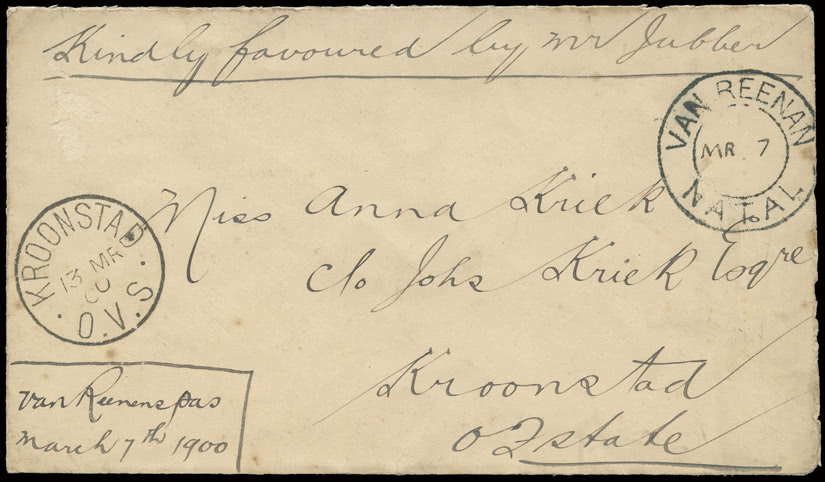 Kindly favoured by mr Jubber
VAN REENAN
MR 7
NATAL
Miss Anna Kriek
c/o Johs Kriek Esqre
KROONSTAD
13 MR
00
O.V.S.
Kroonstad
O F state
van Reenens pas
march 7th 1900